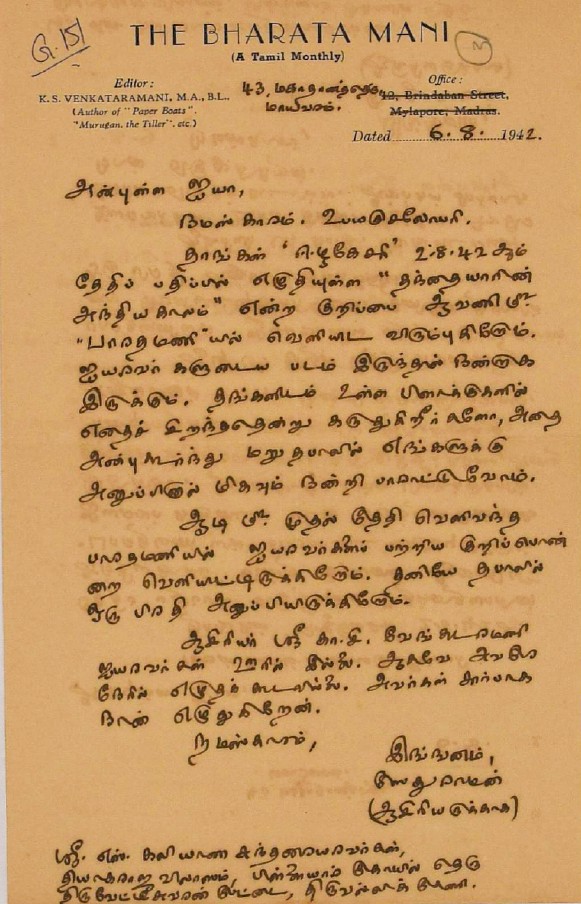 G.151
THE BHARATA MANI
3
(A Tamil Monthly)
Editor:
K. S. VENKATARAMANI, M.A., B.L.,
(Author of "Paper Boats",
"Murugan, the Tiller", etc.)
43, மகாதானத்தெரு,
மாயவரம்.
Office:
42, Brindaban Street,
Mylapore, Madras.
Dated 6. 8. 1942.
அன்புள்ள ஐயா,
நமஸ்காரம். உபயகுசலோபரி.
தாங்கள் 'ஈழகேசரி' 2.8.42 ஆம்
தேதிப் பதிப்பில் எழுதியுள்ள "தந்தையாரின்
அந்தியகாலம்" என்ற குறிப்பை ஆவணி மீ
"பாரதமணி"யில் வெளியிட விரும்புகிறோம்.
ஐயரவர்களுடைய படம் இருந்தால் நன்றாக
இருக்கும். தங்களிடம் உள்ள பிளாக்குகளில்
எதைச் சிறந்ததென்று கருதுகிறீர்களோ, அதை
அன்பு கூர்ந்து மறுதபாலில் எங்களுக்கு
அனுப்பினால் மிகவும் நன்றி பாராட்டுவோம்.
ஆடி மீ முதல் தேதி வெளிவந்த
பாரதமணியில் ஐயரவர்களைப் பற்றிய குறிப்பொன்
றை வெளியிட்டிருக்கிறோம். தனியே தபாலில்
ஒரு பிரதி அனுப்பியிருக்கிறோம்.
ஆசிரியர் ஸ்ரீ கா. சி. வேங்கடரமணி
ஐயரவர்கள் ஊரில் இல்லை. ஆகவே அவரே
நேரில் எழுதக் கூடவில்லை. அவர்கள் சார்பாக
நான் எழுதுகிறேன்.
நமஸ்காரம்,
இங்ஙனம்,
சேதுராமன்
(ஆசிரியருக்காக)
ஸ்ரீ. எஸ். கலியாண சுந்தரையரவர்கள்,
தியாகராஜ விலாஸம், பிள்ளையார் கோயில் தெரு
திருவேட்டீசுவரன் பேட்டை, திருவல்லிக்கேணி.